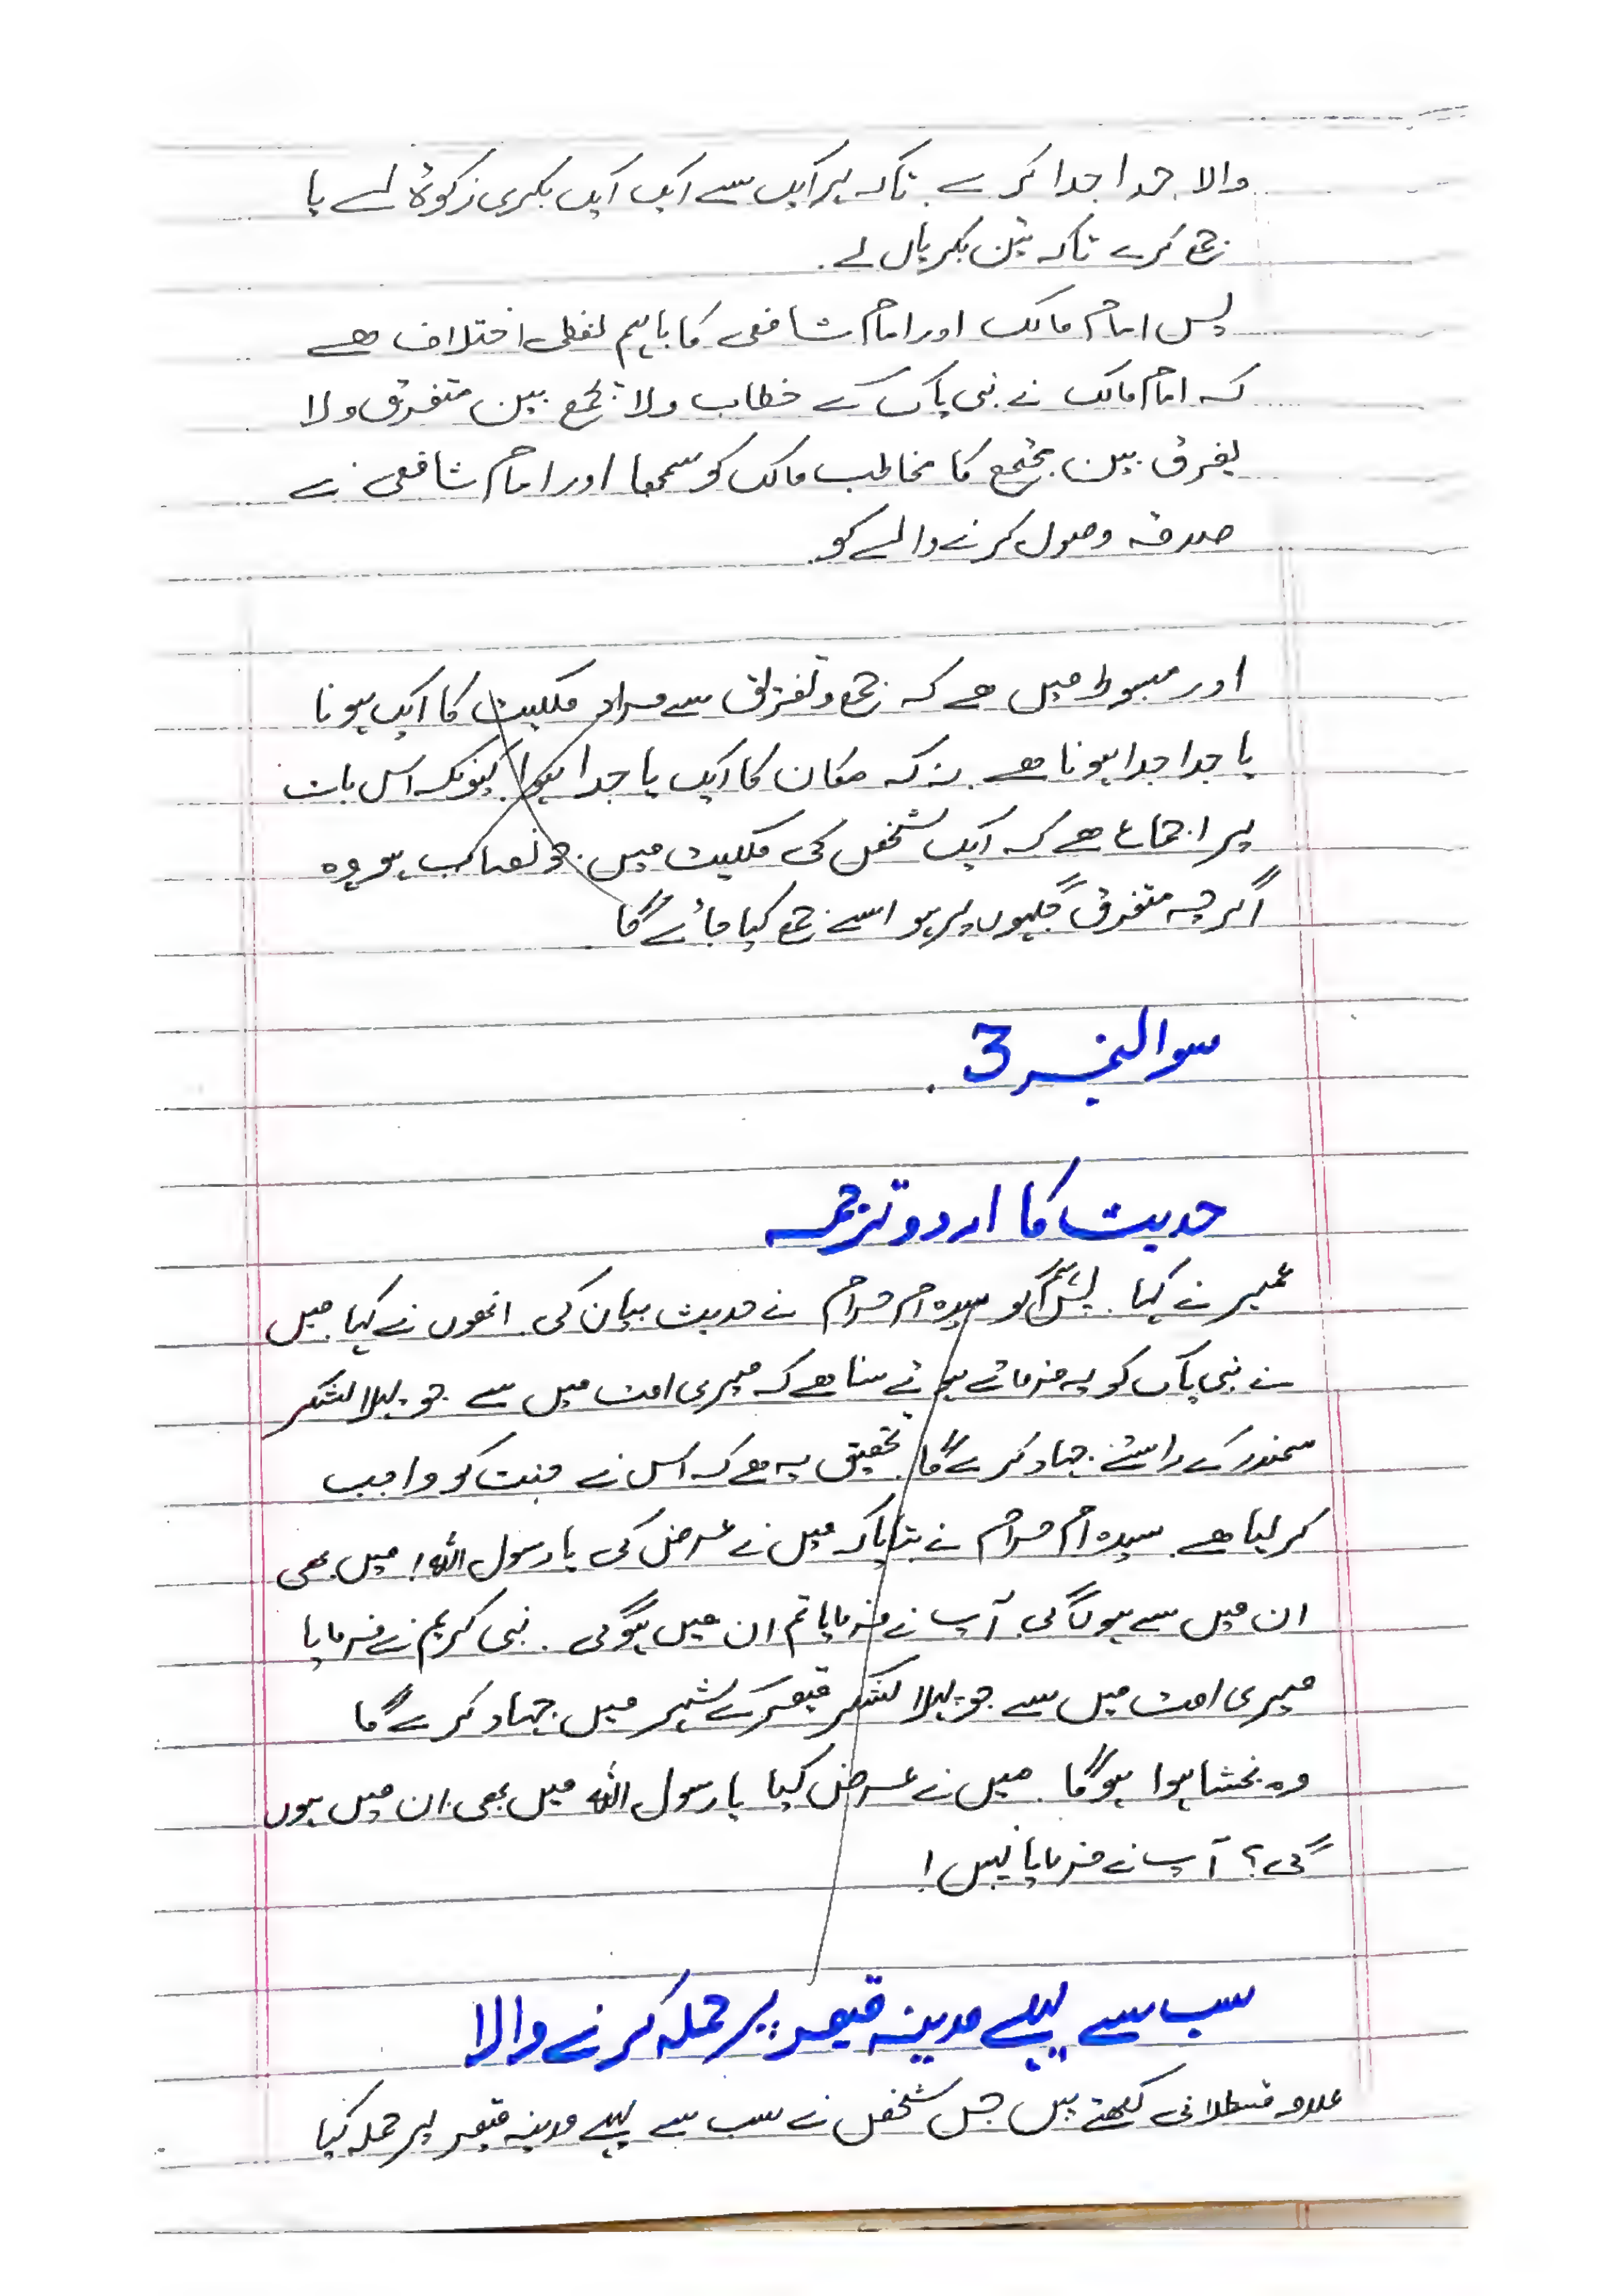 والا جدا جدا کرے تاکہ ہر ایک سے ایک ایک بکری زکوۃ لے یا
جمع کرے تاکہ تین بکریاں لے.
پس امام مالک اور امام شافعی کا باہم لفظی اختلاف ہے
کہ امام مالک نے نبی پاک کے خطاب ولا یجمع بین متفرق ولا
یفرق بین مجتمع کا مخاطب مالک کو سمجھا اور امام شافعی نے
صدقہ وصول کرنے والے کو.
اور مبسوط میں ہے کہ جمع و تفریق سے مراد ملکیت کا ایک ہونا
یا جدا جدا ہونا ہے نہ کہ مکان کا ایک یا جدا ہونا کیونکہ اس بات
پر اجماع ہے کہ ایک شخص کی ملکیت میں جو نصاب ہو وہ
اگرچہ متفرق جگہوں پر ہو اسے جمع کیا جائے گا.
سوال نمبر 3.
حدیث کا اردو ترجمہ
عمیر نے کہا. پس ہم کو سیدہ ام حرام نے حدیث بیان کی انھوں نے کہا میں
نے نبی پاک کو یہ فرماتے ہوئے سنا ہے کہ میری امت میں سے جو پہلا لشکر
سمندر کے راستے جہاد کرے گا تحقیق یہ ہے کہ اس نے جنت کو واجب
کر لیا ہے. سیدہ ام حرام نے بتایا کہ میں نے عرض کی یا رسول اللہ! میں بھی
ان میں سے ہوں گی آپ نے فرمایا تم ان میں ہوگی. نبی کریم نے فرمایا
میری امت میں سے جو پہلا لشکر قیصر کے شہر میں جہاد کرے گا
وہ بخشا ہوا ہوگا. میں نے عرض کیا یا رسول اللہ میں بھی ان میں ہوں
گی؟ آپ نے فرمایا نہیں!
سب سے پہلے مدینہ قیصر پر حملہ کرنے والا
علامہ قسطلانی لکھتے ہیں جس شخص نے سب سے پہلے مدینہ قیصر پر حملہ کیا